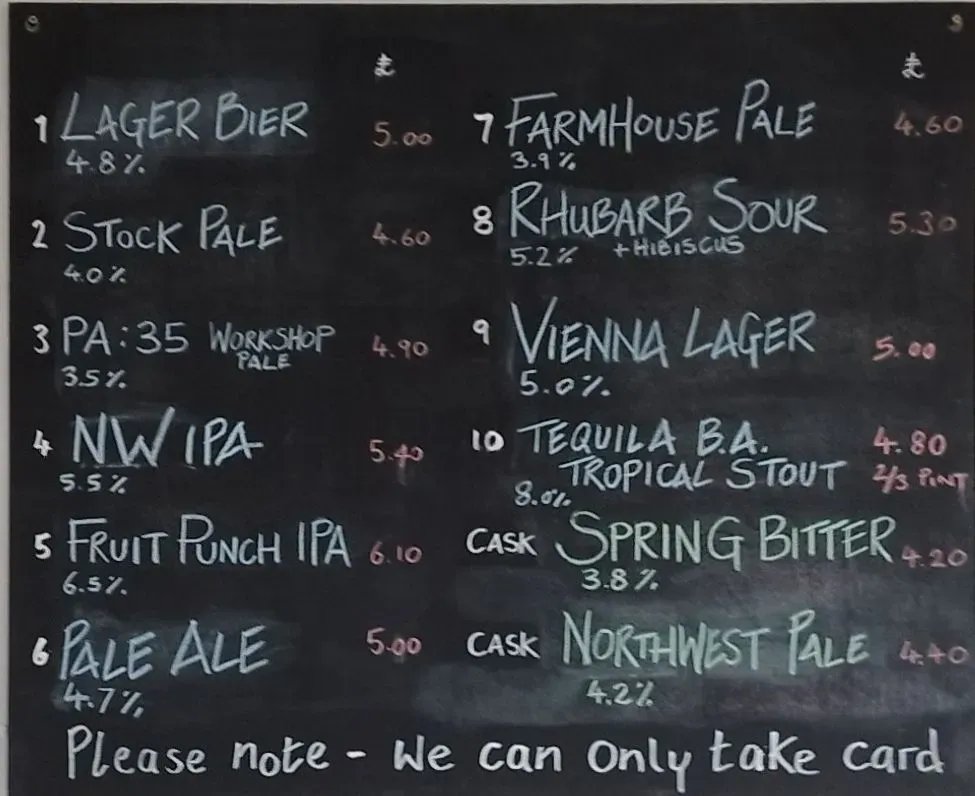 £
1 LAGER BIER 5.00
4.8%
2 STOCK PALE 4.60
4.0%
3 PA:35 WORKSHOP PALE 4.90
3.5%
4 NW IPA 5.40
5.5%
5 FRUIT PUNCH IPA 6.10
6.5%
6 PALE ALE 5.00
4.7%
£
7 FARMHOUSE PALE 4.60
3.9%
8 RHUBARB SOUR 5.30
5.2% +HIBISCUS
9 VIENNA LAGER 5.00
5.0%
10 TEQUILA B.A. 4.80
TROPICAL STOUT 2/3 PINT
8.0%
CASK SPRING BITTER 4.20
3.8%
CASK NORTHWEST PALE 4.40
4.2%
Please note - We can only take card